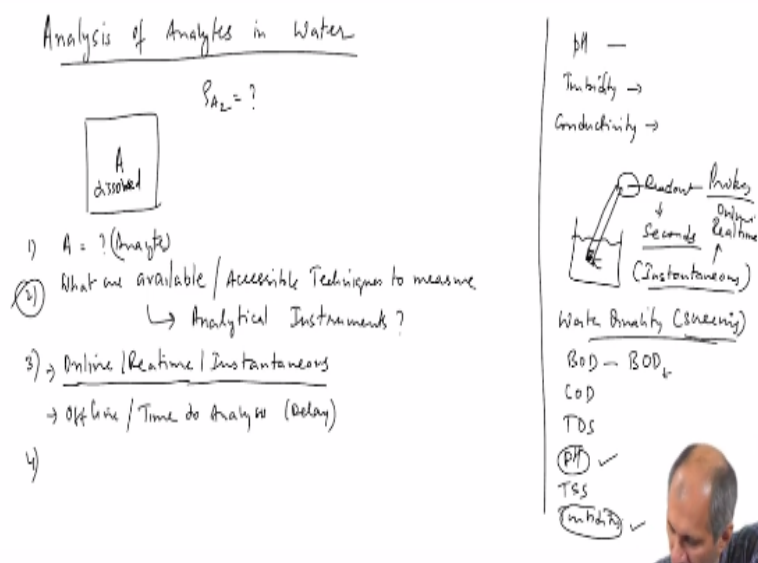 Analysis of Analytes in Water
ρA2 = ?
A
dissolved
1) A = ? (Analyte)
2) What are available / Accessible Techniques to measure
↳ Analytical Instruments ?
3) → Online / Realtime / Instantaneous
→ Offline / Time to Analysis (Delay)
4)
pH —
Turbidity →
Conductivity →
Readout — Probes
Online
Seconds Realtime
(Instantaneous)
Water Quality (Screening)
BOD — BOD
COD
TDS
pH ✓
TSS
turbidity ✓